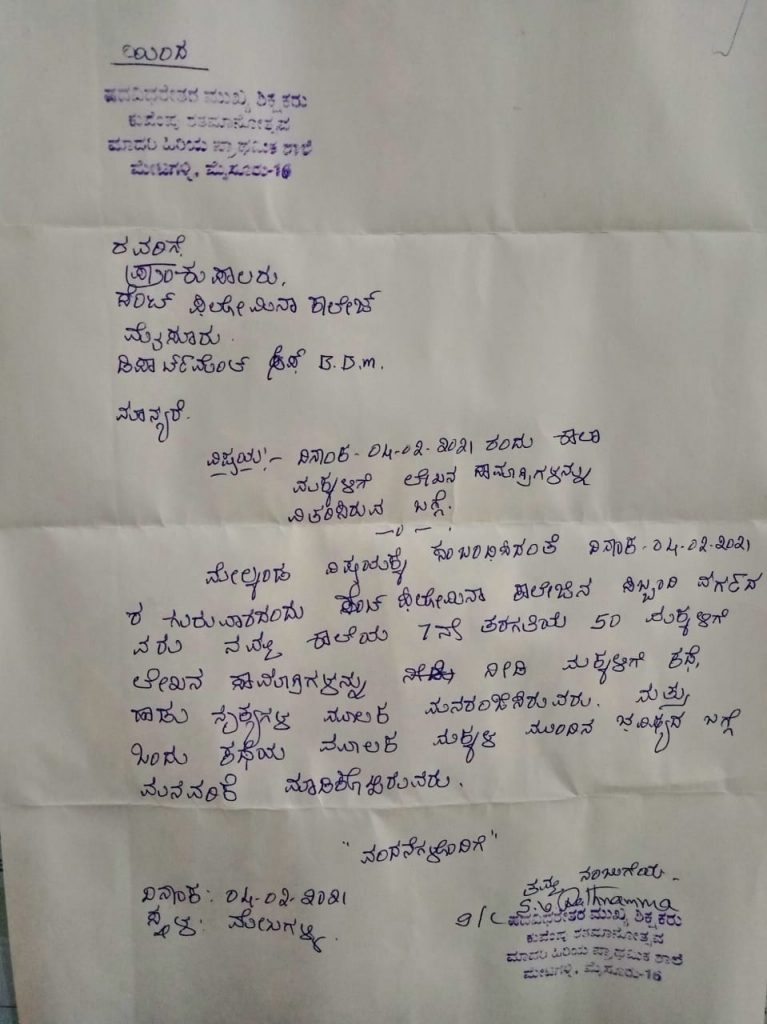 ಇಂದ
ಪದವಿಧರೇತರ ಮುಖ್ಯ ಶಿಕ್ಷಕರು
ಕುವೆಂಪು ಶತಮಾನೋತ್ಸವ
ಮಾದರಿ ಹಿರಿಯ ಪ್ರಾಥಮಿಕ ಶಾಲೆ
ಮೇಟಗಳ್ಳಿ, ಮೈಸೂರು-16
ರವರಿಗೆ,
ಪ್ರಾಂಶುಪಾಲರು,
ಸೆಂಟ್ ಫಿಲೋಮಿನಾ ಕಾಲೇಜ್
ಮೈಸೂರು.
ಡಿಪಾರ್ಟ್‌ಮೆಂಟ್ ಆಫ್ B.B.M.
ಮಾನ್ಯರೆ.
ವಿಷಯ:- ದಿನಾಂಕ- 04-02-2021 ರಂದು ಶಾಲಾ
ಮಕ್ಕಳಿಗೆ ಲೇಖನ ಸಾಮಾಗ್ರಿಗಳನ್ನು
ವಿತರಿಸಿರುವ ಬಗ್ಗೆ.
ಮೇಲ್ಕಂಡ ವಿಷಯಕ್ಕೆ ಸಂಬಂಧಿಸಿದಂತೆ ದಿನಾಂಕ-04-02-2021
ರ ಗುರುವಾರದಂದು ಸೆಂಟ್ ಫಿಲೋಮಿನಾ ಕಾಲೇಜಿನ ಸಿಬ್ಬಂದಿ ವರ್ಗದ
ವರು ನಮ್ಮ ಶಾಲೆಯ 7ನೇ ತರಗತಿಯ 50 ಮಕ್ಕಳಿಗೆ
ಲೇಖನ ಸಾಮಾಗ್ರಿಗಳನ್ನು ನೀಡಿ ಮಕ್ಕಳಿಗೆ ಕಥೆ,
ಹಾಡು ನೃತ್ಯಗಳ ಮೂಲಕ ಮನರಂಜಿಸಿರುವರು. ಮತ್ತು
ಒಂದು ಕಥೆಯ ಮೂಲಕ ಮಕ್ಕಳ ಮುಂದಿನ ಭವಿಷ್ಯದ ಬಗ್ಗೆ
ಮನವರಿಕೆ ಮಾಡಿಕೊಟ್ಟಿರುವರು.
"ವಂದನೆಗಳೊಂದಿಗೆ"
ದಿನಾಂಕ: 04-02-2021
ಸ್ಥಳ: ಮೇಟಗಳ್ಳಿ.
ತಮ್ಮ ನಂಬುಗೆಯ-
ಪದವಿಧರೇತರ ಮುಖ್ಯ ಶಿಕ್ಷಕರು
ಕುವೆಂಪು ಶತಮಾನೋತ್ಸವ
ಮಾದರಿ ಹಿರಿಯ ಪ್ರಾಥಮಿಕ ಶಾಲೆ
ಮೇಟಗಳ್ಳಿ, ಮೈಸೂರು-16